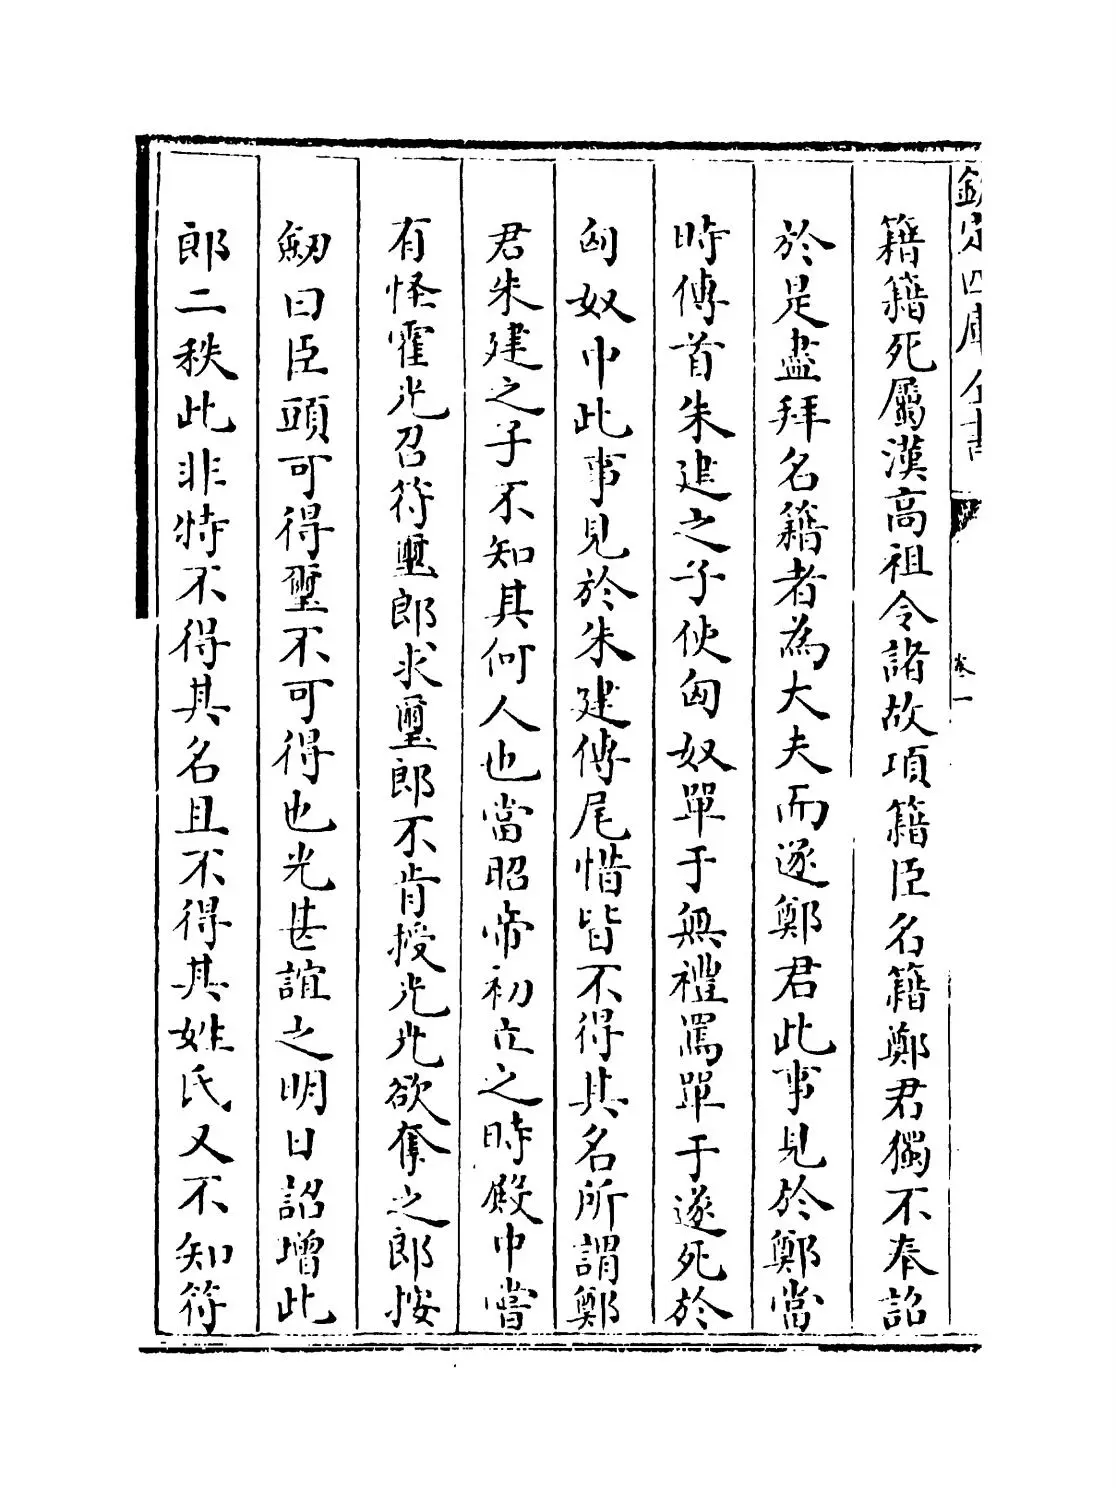 欽定四庫全書
卷一
籍籍死屬漢高祖令諸故項籍臣名籍鄭君獨不奉詔
於是盡拜名籍者為大夫而逐鄭君此事見於鄭當
時傳首朱建之子使匈奴單于無禮罵單于遂死於
匈奴中此事見於朱建傳尾惜皆不得其名所謂鄭
君朱建之子不知其何人也當昭帝初立之時殿中嘗
有怪霍光召符璽郎求璽郎不肯授光光欲奪之郎按
劒曰臣頭可得璽不可得也光甚誼之明日詔增此
郎二秩此非特不得其名且不得其姓氏又不知符